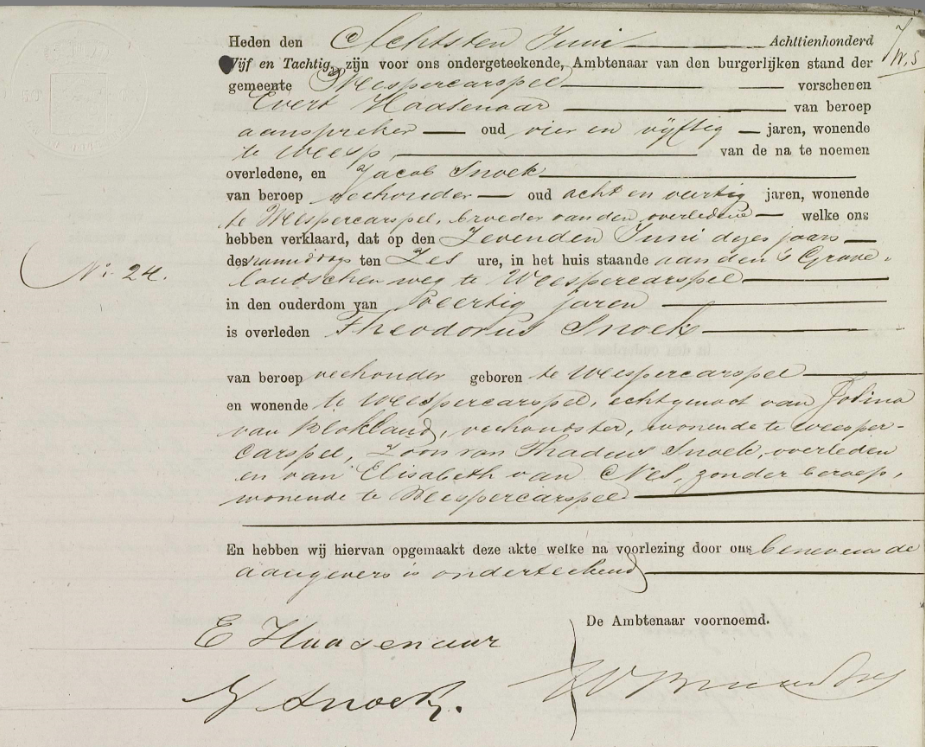 Heden den Achtsten Juni Achttienhonderd
Vijf en Tachtig, zijn voor ons ondergeteekende, Ambtenaar van den burgerlijken stand der
gemeente Weespercarspel verschenen
Evert Haasenaar van beroep
aanspreker oud vier en vijftig jaren, wonende
te Weesp, van de na te noemen
overledene, en Jacob Snoek
van beroep veehouder oud acht en veertig jaren, wonende
te Weespercarspel, broeder van den overledene welke ons
hebben verklaard, dat op den Zevenden Juni dezes jaars
des namiddags ten Zes ure, in het huis staande aan den 's Grave-
landschen weg te Weespercarspel
in den ouderdom van Veertig jaren
is overleden Theodorus Snoek
van beroep veehouder geboren te Weespercarspel
en wonende te Weespercarspel, echtgenoot van Jolina
van Blokland, veehoudster, wonende te Weesper-
carspel, Zoon van Thadeus Snoek, overleden
en van Elisabeth van Nes, zonder beroep,
wonende te Weespercarspel
En hebben wij hiervan opgemaakt deze akte welke na voorlezing door ons benevens de
aangevers is onderteekend
No. 24.
De Ambtenaar voornoemd.
E Haasenaar
J Snoek.